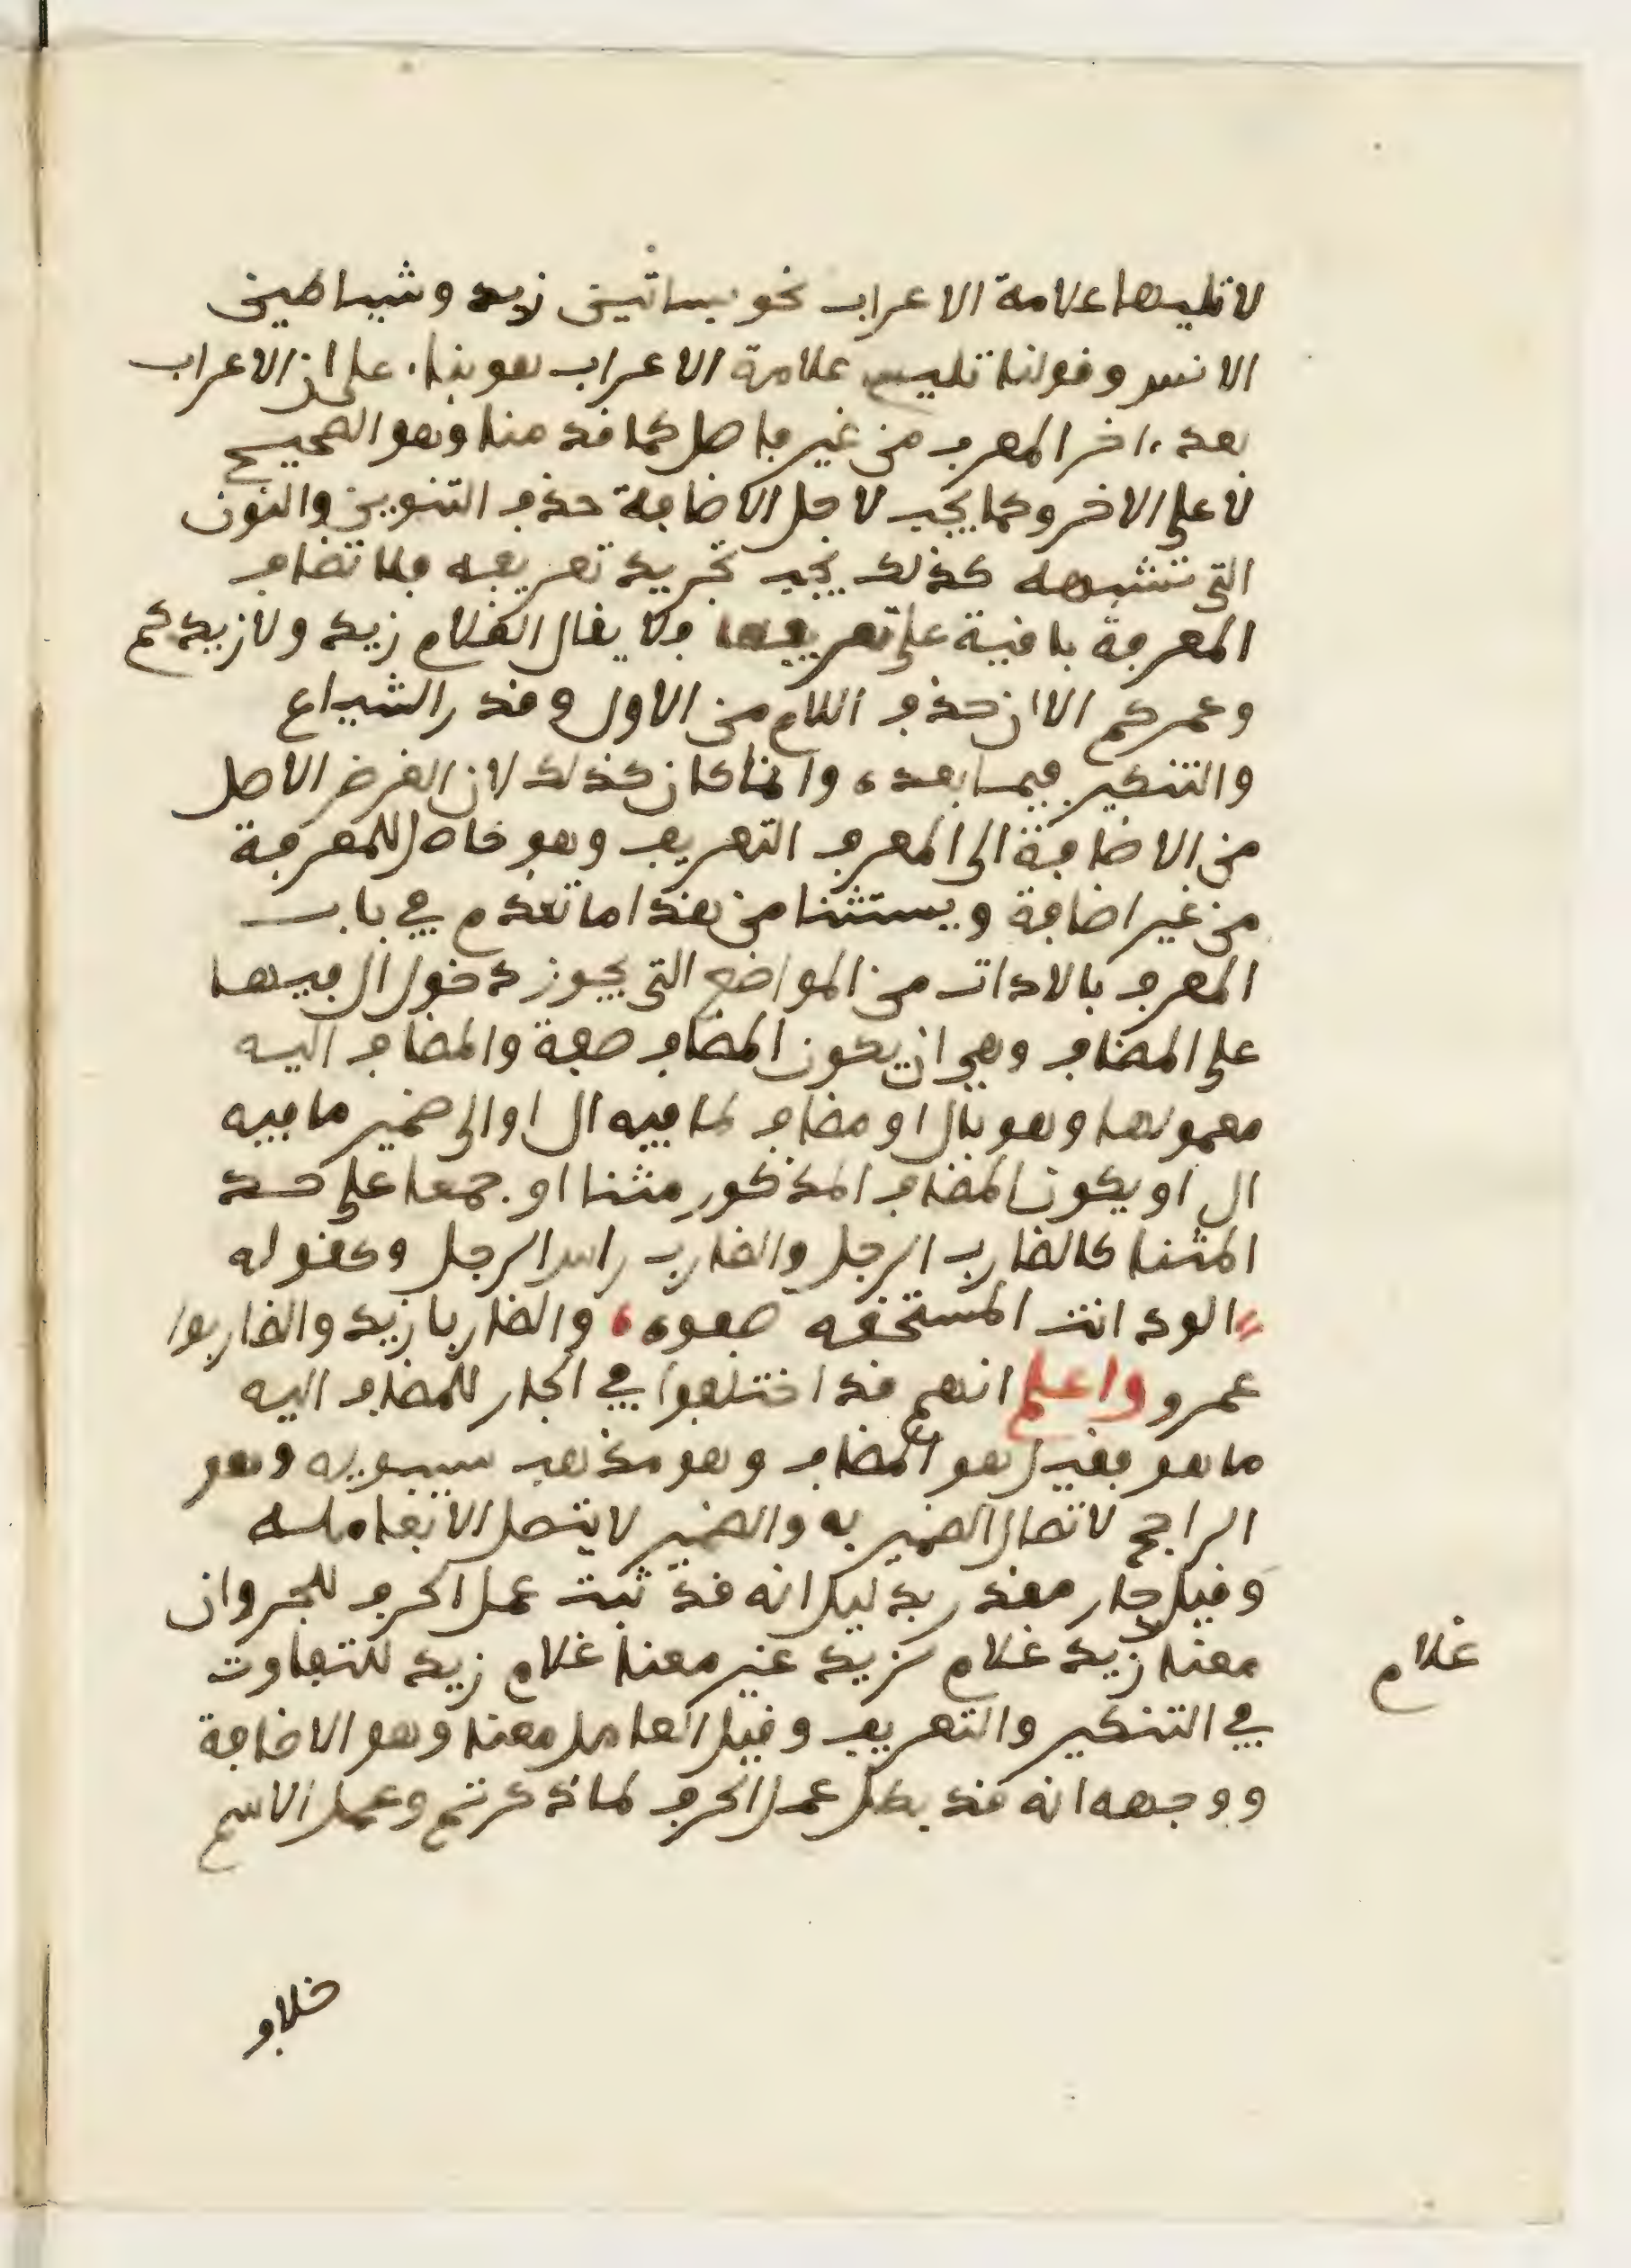 لا تليها علامة الاعراب نحو بساتين زيد وشياطين
الانس وقولنا تليها علامة الاعراب هو بناء على ان الاعراب
بعد ءاخر المعرب من غير فاصل كما قدمنا وهو الصحيح
لا على الاخر وكما يجب لاجل الاضافة حذف التنوين والنون
التي تشبهه كذلك يجب تجريد تعريفه فلا تضاف
المعرفة باقية على تعريفها فلا يقال الغلام زيد ولا زيدكم
وعمركم الا ان حذف اللام من الاول وقدر الشياع
والتنكير فيما بعده وانما كان كذلك لان الغرض الاصل
من الاضافة الى المعرف التعريف وهو حاصل للمعرفة
من غير اضافة ويستثنا من هذا ما تقدم في باب
المعرف بالادات من المواضع التي يجوز دخول ال فيها
على المضاف وهي ان يكون المضاف صفة والمضاف اليه
معمولها وهو بال او مضاف لما فيه ال او الى ضمير ما فيه
ال او يكون المضاف المذكور مثنا او جمعا على حد
المثنا كالضارب الرجل والضارب راس الرجل وكقوله
الود انت المستحقه صفوه والضاربا زيد والضاربوا
عمرو واعلم انهم قد اختلفوا في الجار للمضاف اليه
ما هو فقيل هو المضاف وهو مذهب سيبويه وهو
الراجح لاتصال الضمير به والضمير لا يتصل الا بعامله
وقيل جار مقدر بدليل انه قد ثبت عمل الحرف للجر وان
معنا زيد غلام لزيد غير معنا غلام زيد للتفاوت
غلام
في التنكير والتعريف وقيل العامل معنا وهو الاضافة
ووجهه انه قد بطل عمل الحرف لما ذكرتم وعمل الاسم
خلاف